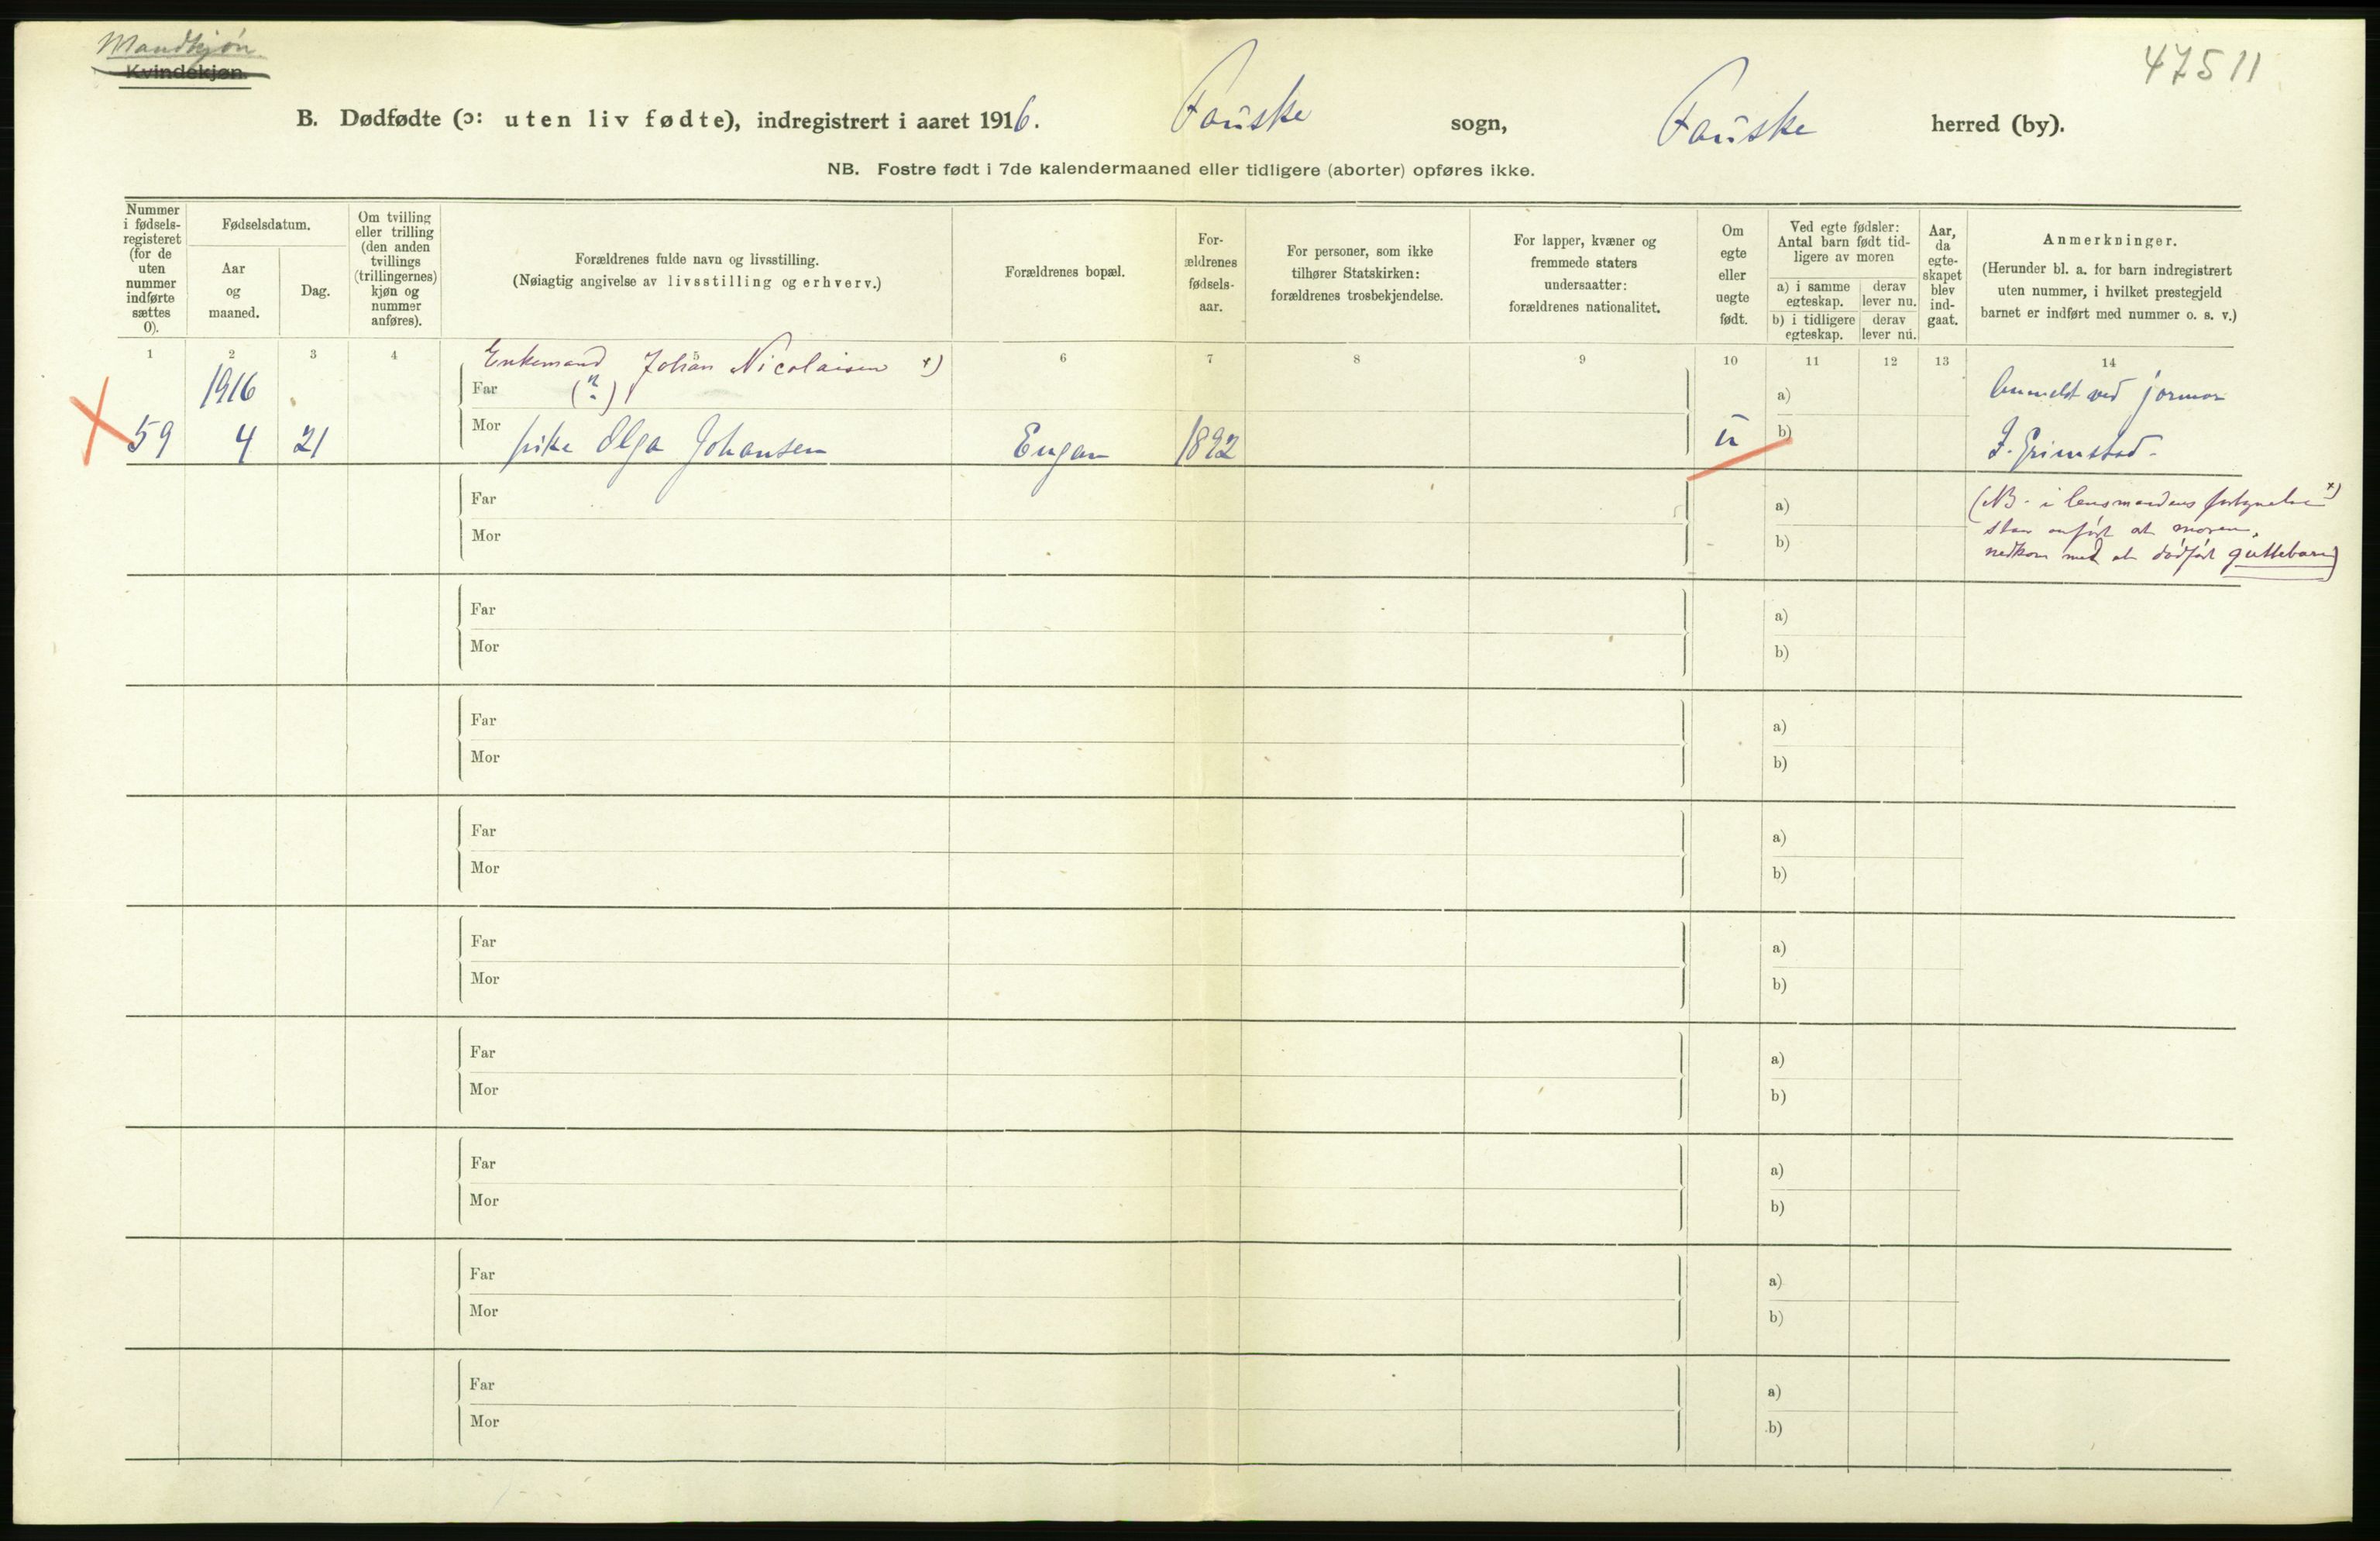 Mandkjøn
Kvindekjøn.
47511
B. Dødfødte (ɔ: uten liv fødte), indregistrert i aaret 1916. Fauske sogn, Fauske herred (by).
NB. Fostre født i 7de kalendermaaned eller tidligere (aborter) opføres ikke.
Nummer i fødsels-registeret (for de uten nummer indførte sættes 0).
Fødselsdatum.
Aar og maaned.
Dag.
Om tvilling eller trilling (den anden tvillings (trillingernes) kjøn og nummer anføres).
Forældrenes fulde navn og livsstilling.
(Nøiagtig angivelse av livsstilling og erhverv.)
Forældrenes bopæl.
For-ældrenes fødsels-aar.
For personer, som ikke tilhører Statskirken: forældrenes trosbekjendelse.
For lapper, kvæner og fremmede staters undersaatter: forældrenes nationalitet.
Om egte eller uegte født.
Ved egte fødsler: Antal barn født tid-ligere av moren
a) i samme egteskap.
derav lever nu.
b) i tidligere egteskap.
derav lever nu.
Aar, da egte-skapet blev ind-gaat.
Anmerkninger.
(Herunder bl. a. for barn indregistrert uten nummer, i hvilket prestegjeld barnet er indført med nummer o. s. v.)
1 2 3 4 5 6 7 8 9 10 11 12 13 14
Enkemand Johan Nicolaisen x)
1916 Far (?) a) Anmeldt ved jormor
59 4 21 Mor pike Olga Johansen Engan 1892 u b) I. Grimstad.
Far a) (NB. i lensmandens x)
staar anført at moren
Mor b) nedkom med et dødfødt guttebarn)
Far a)
Mor b)
Far a)
Mor b)
Far a)
Mor b)
Far a)
Mor b)
Far a)
Mor b)
Far a)
Mor b)
Far a)
Mor b)
Far a)
Mor b)